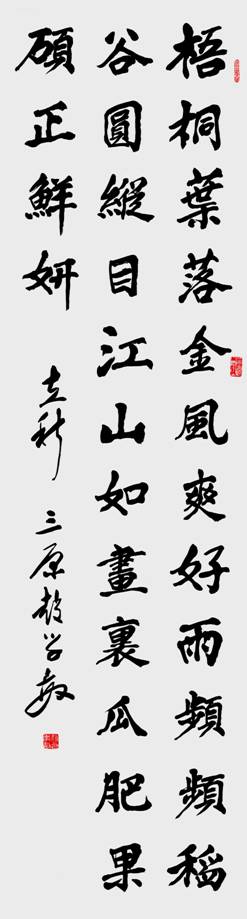 梧桐葉落金風爽好雨頻頻稻
谷圓縱目江山如畫裏瓜肥果
碩正鮮妍
立秋 三原赵学敏